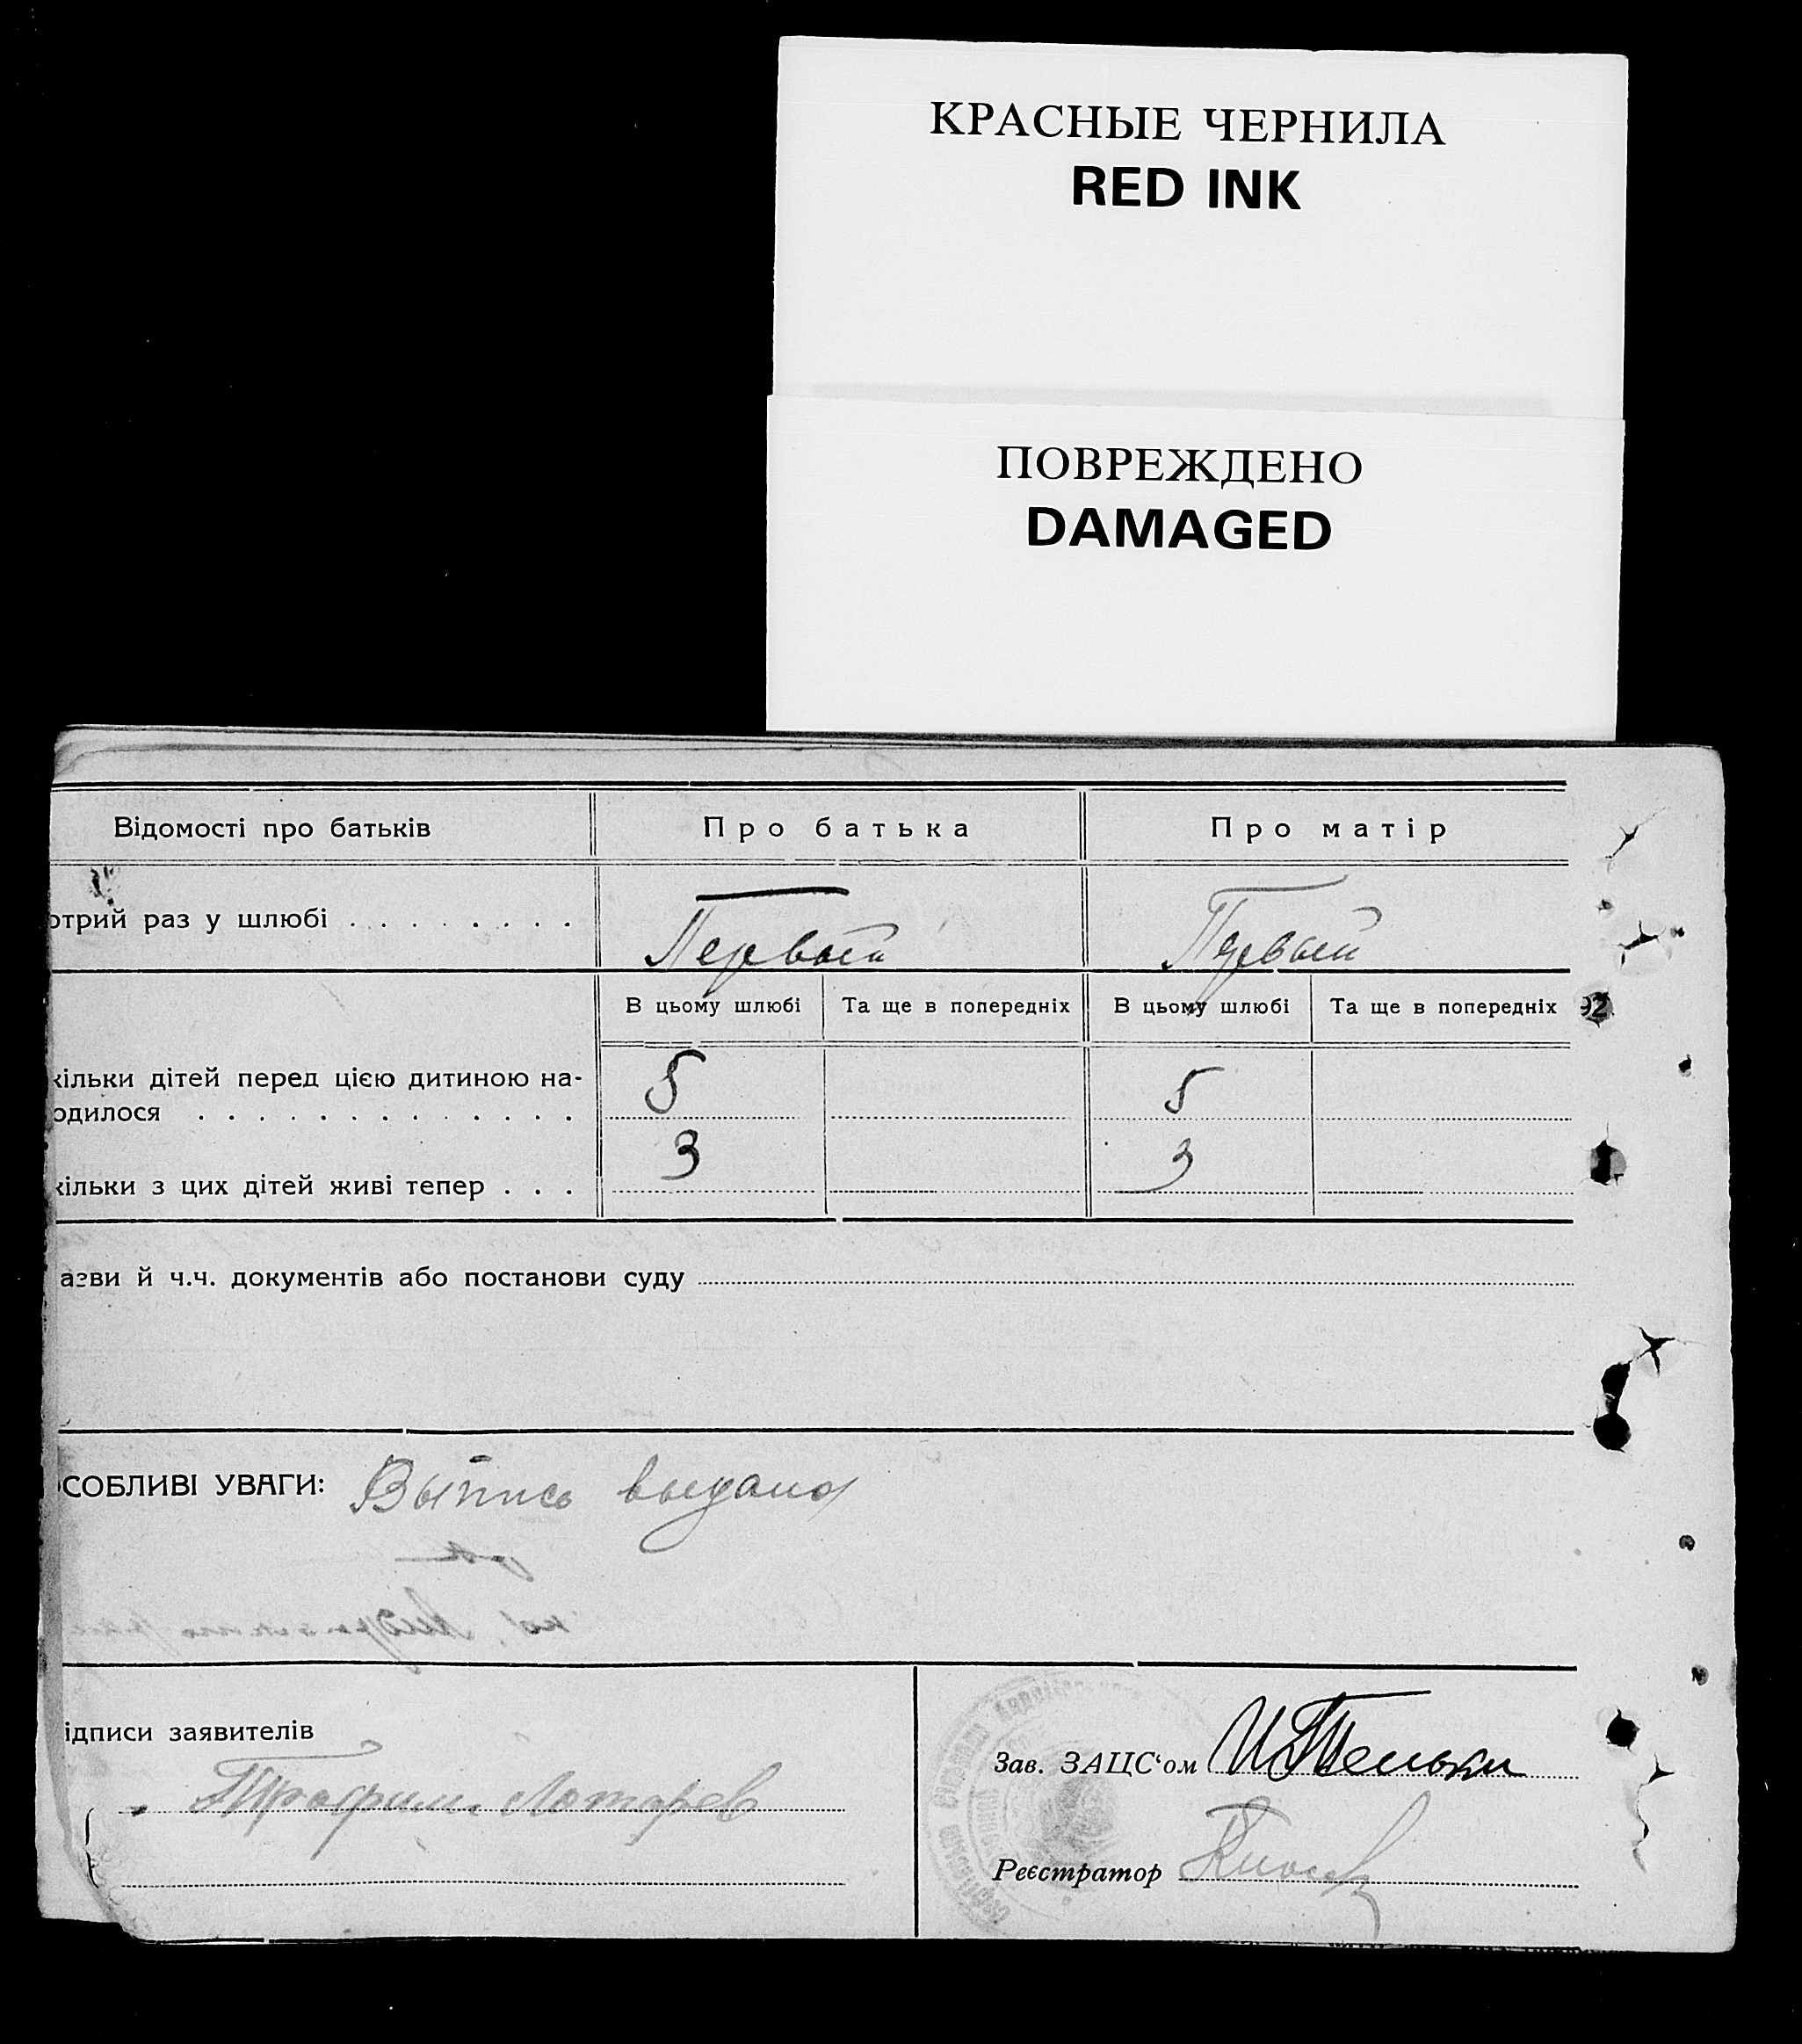 КРАСНЫЕ ЧЕРНИЛА
RED INK
ПОВРЕЖДЕНО
DAMAGED
Відомості про батьків
Про батька
Про матір
отрий раз у шлюбі
Первый
Первый
В цьому шлюбі
Та ще в попередніх
В цьому шлюбі
Та ще в попередніх
92
кільки дітей перед цією дитиною на-
одилося
5
5
кільки з цих дітей живі тепер
3
3
азви й ч.ч. документів або постанови суду
СОБЛИВІ УВАГИ: Выпись выдана
ідписи заявителів
Трофим Лотарев
Зав. ЗАЦС‘ом
Реєстратор